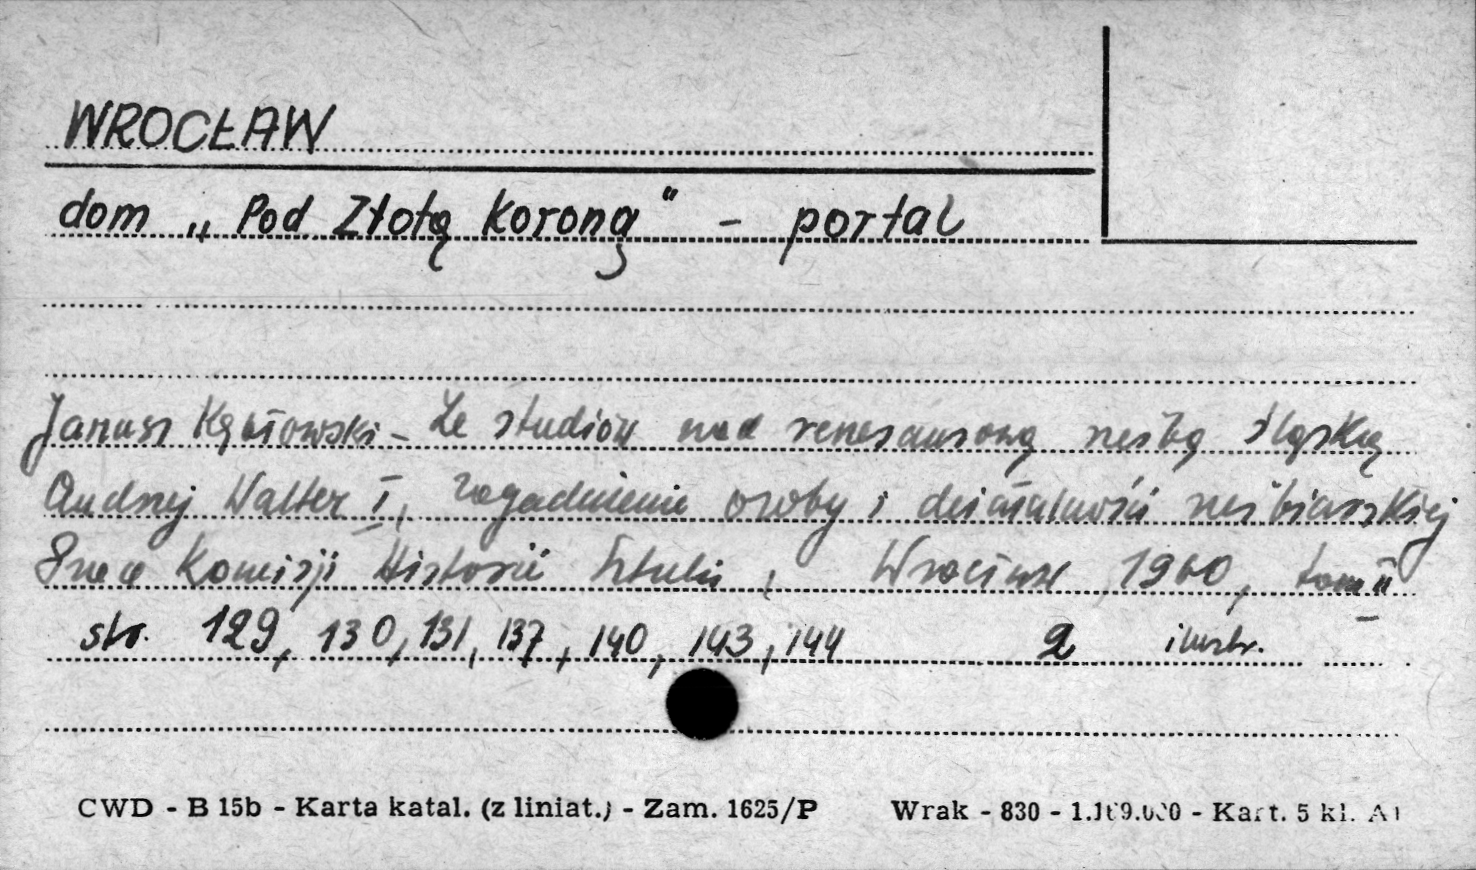 WROCŁAW
dom „Pod Złotą Koroną" - portal
Janusz Kębłowski - Ze studiów nad renesansową rzeźbą śląską
Andrzej Walter I, zagadnienie osoby i działalności rzeźbiarskiej
Prace Komisji Historii Sztuki, Wrocław 1960, tom II
str. 129, 130, 131, 137, 140, 143, 144 2 ilustr.
CWD - B 15b - Karta katal. (z liniat.) - Zam. 1625/P Wrak - 830 - Kart. 5 kl.